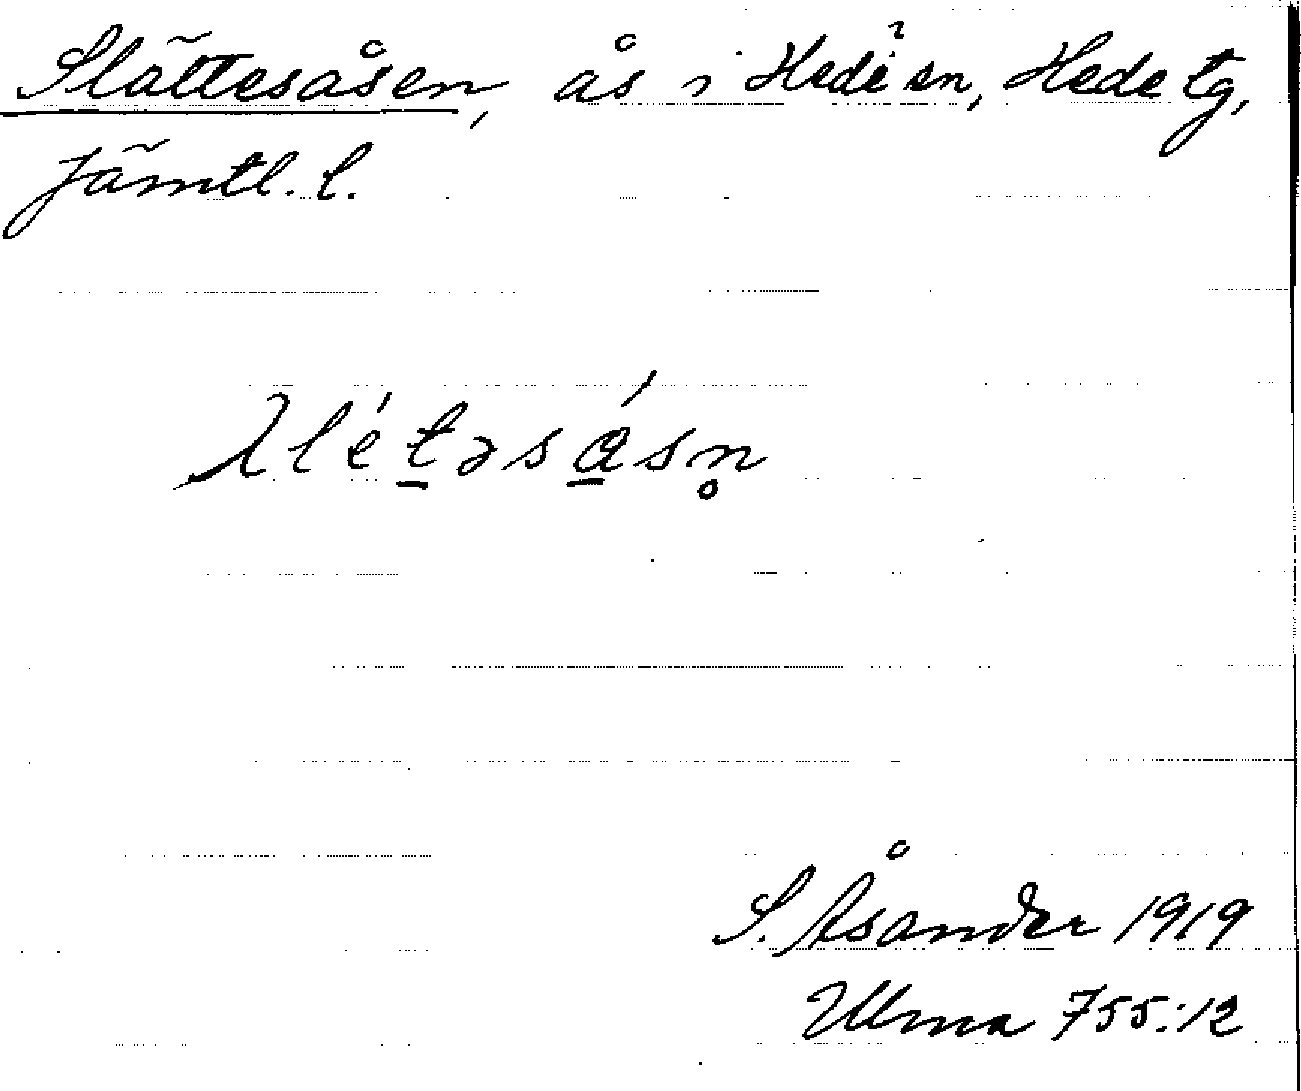 Slättesåsen, ås i Hede sn, Hede tg,
Jämtl. l.
λlét̲əsá̲sn̥
S. Åsander 1919
Ulma 755:12